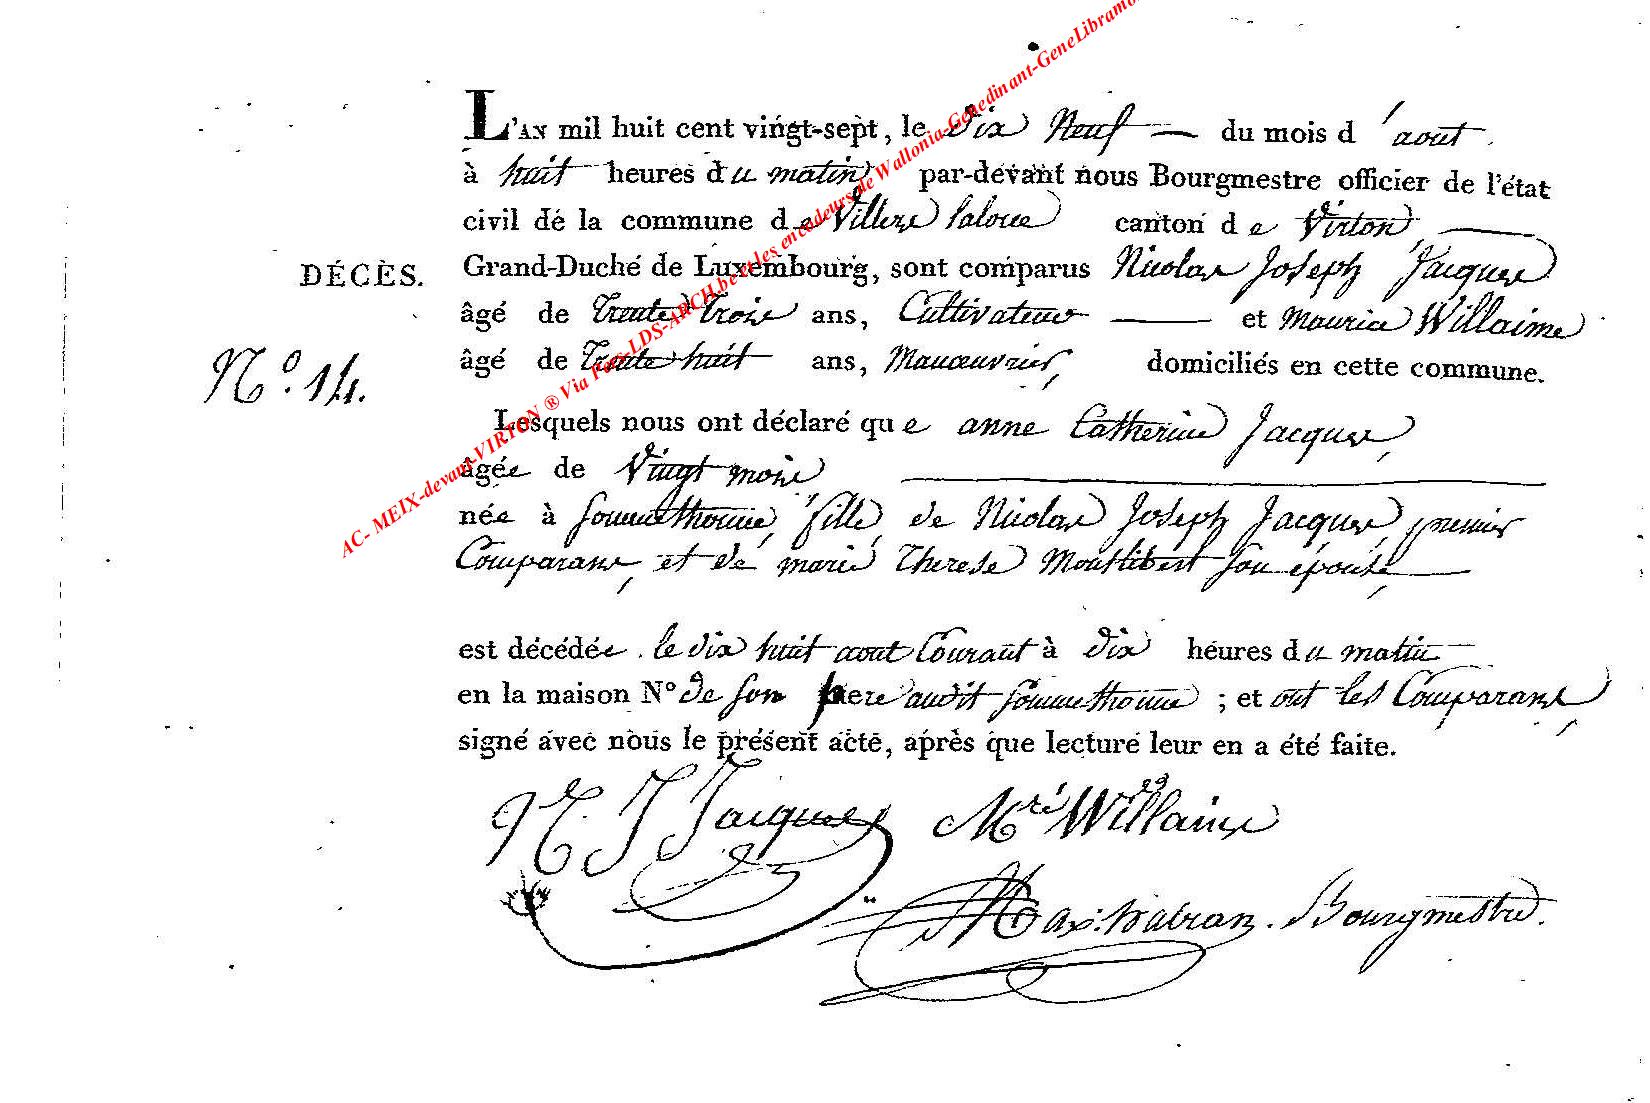 L'AN mil huit cent vingt-sept, le dix Neuf — du mois d'aout.
à huit heures du matin par-devant nous Bourgmestre officier de l'état
civil de la commune de Villers laloue canton de Virton
DÉCÈS.
Grand-Duché de Luxembourg, sont comparus Nicolas Joseph Jacques
âgé de Trente Trois ans, Cultivateur — et Maurice Willaime
N.º 14.
âgé de Trente huit ans, Manœuvrier, domiciliés en cette commune.
Lesquels nous ont déclaré que anne Catherine Jacques,
âgée de Vingt mois
née à Sommethonne, fille de Nicolas Joseph Jacques, premier
Comparans, et de marie Therese Montlibert son épouse,
est décédée le dix huit aout Courant à dix heures du matin
en la maison Nº de son pere audit Sommethonne ; et ont les Comparans,
signé avec nous le présent acte, après que lecture leur en a été faite.
N. J Jacques Mre Willaime
Bourgmestre.
AC- MEIX-devant-VIRTON ® Via Fam-LDS-ARCH.be et les encodeurs de Wallonia-Genedinant-GeneLibramo